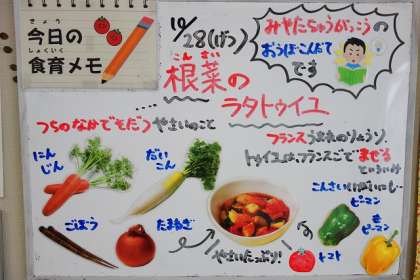 きょう
今日の
しょくいく
食育メモ
10/28(げつ)
みやたちゅうがっこうの
おうぼこんだて
です
こんさい
根菜の
ラタトゥイユ
…つちのなかでそだつ やさいのこと
フランスうまれのりょうり。
トゥイユは、フランスごで まぜる
といういみ
にんじん
だいこん
こんさいいがいに…
ピーマン
ごぼう
たまねぎ
やさいたっぷり!
トマト
きピーマン